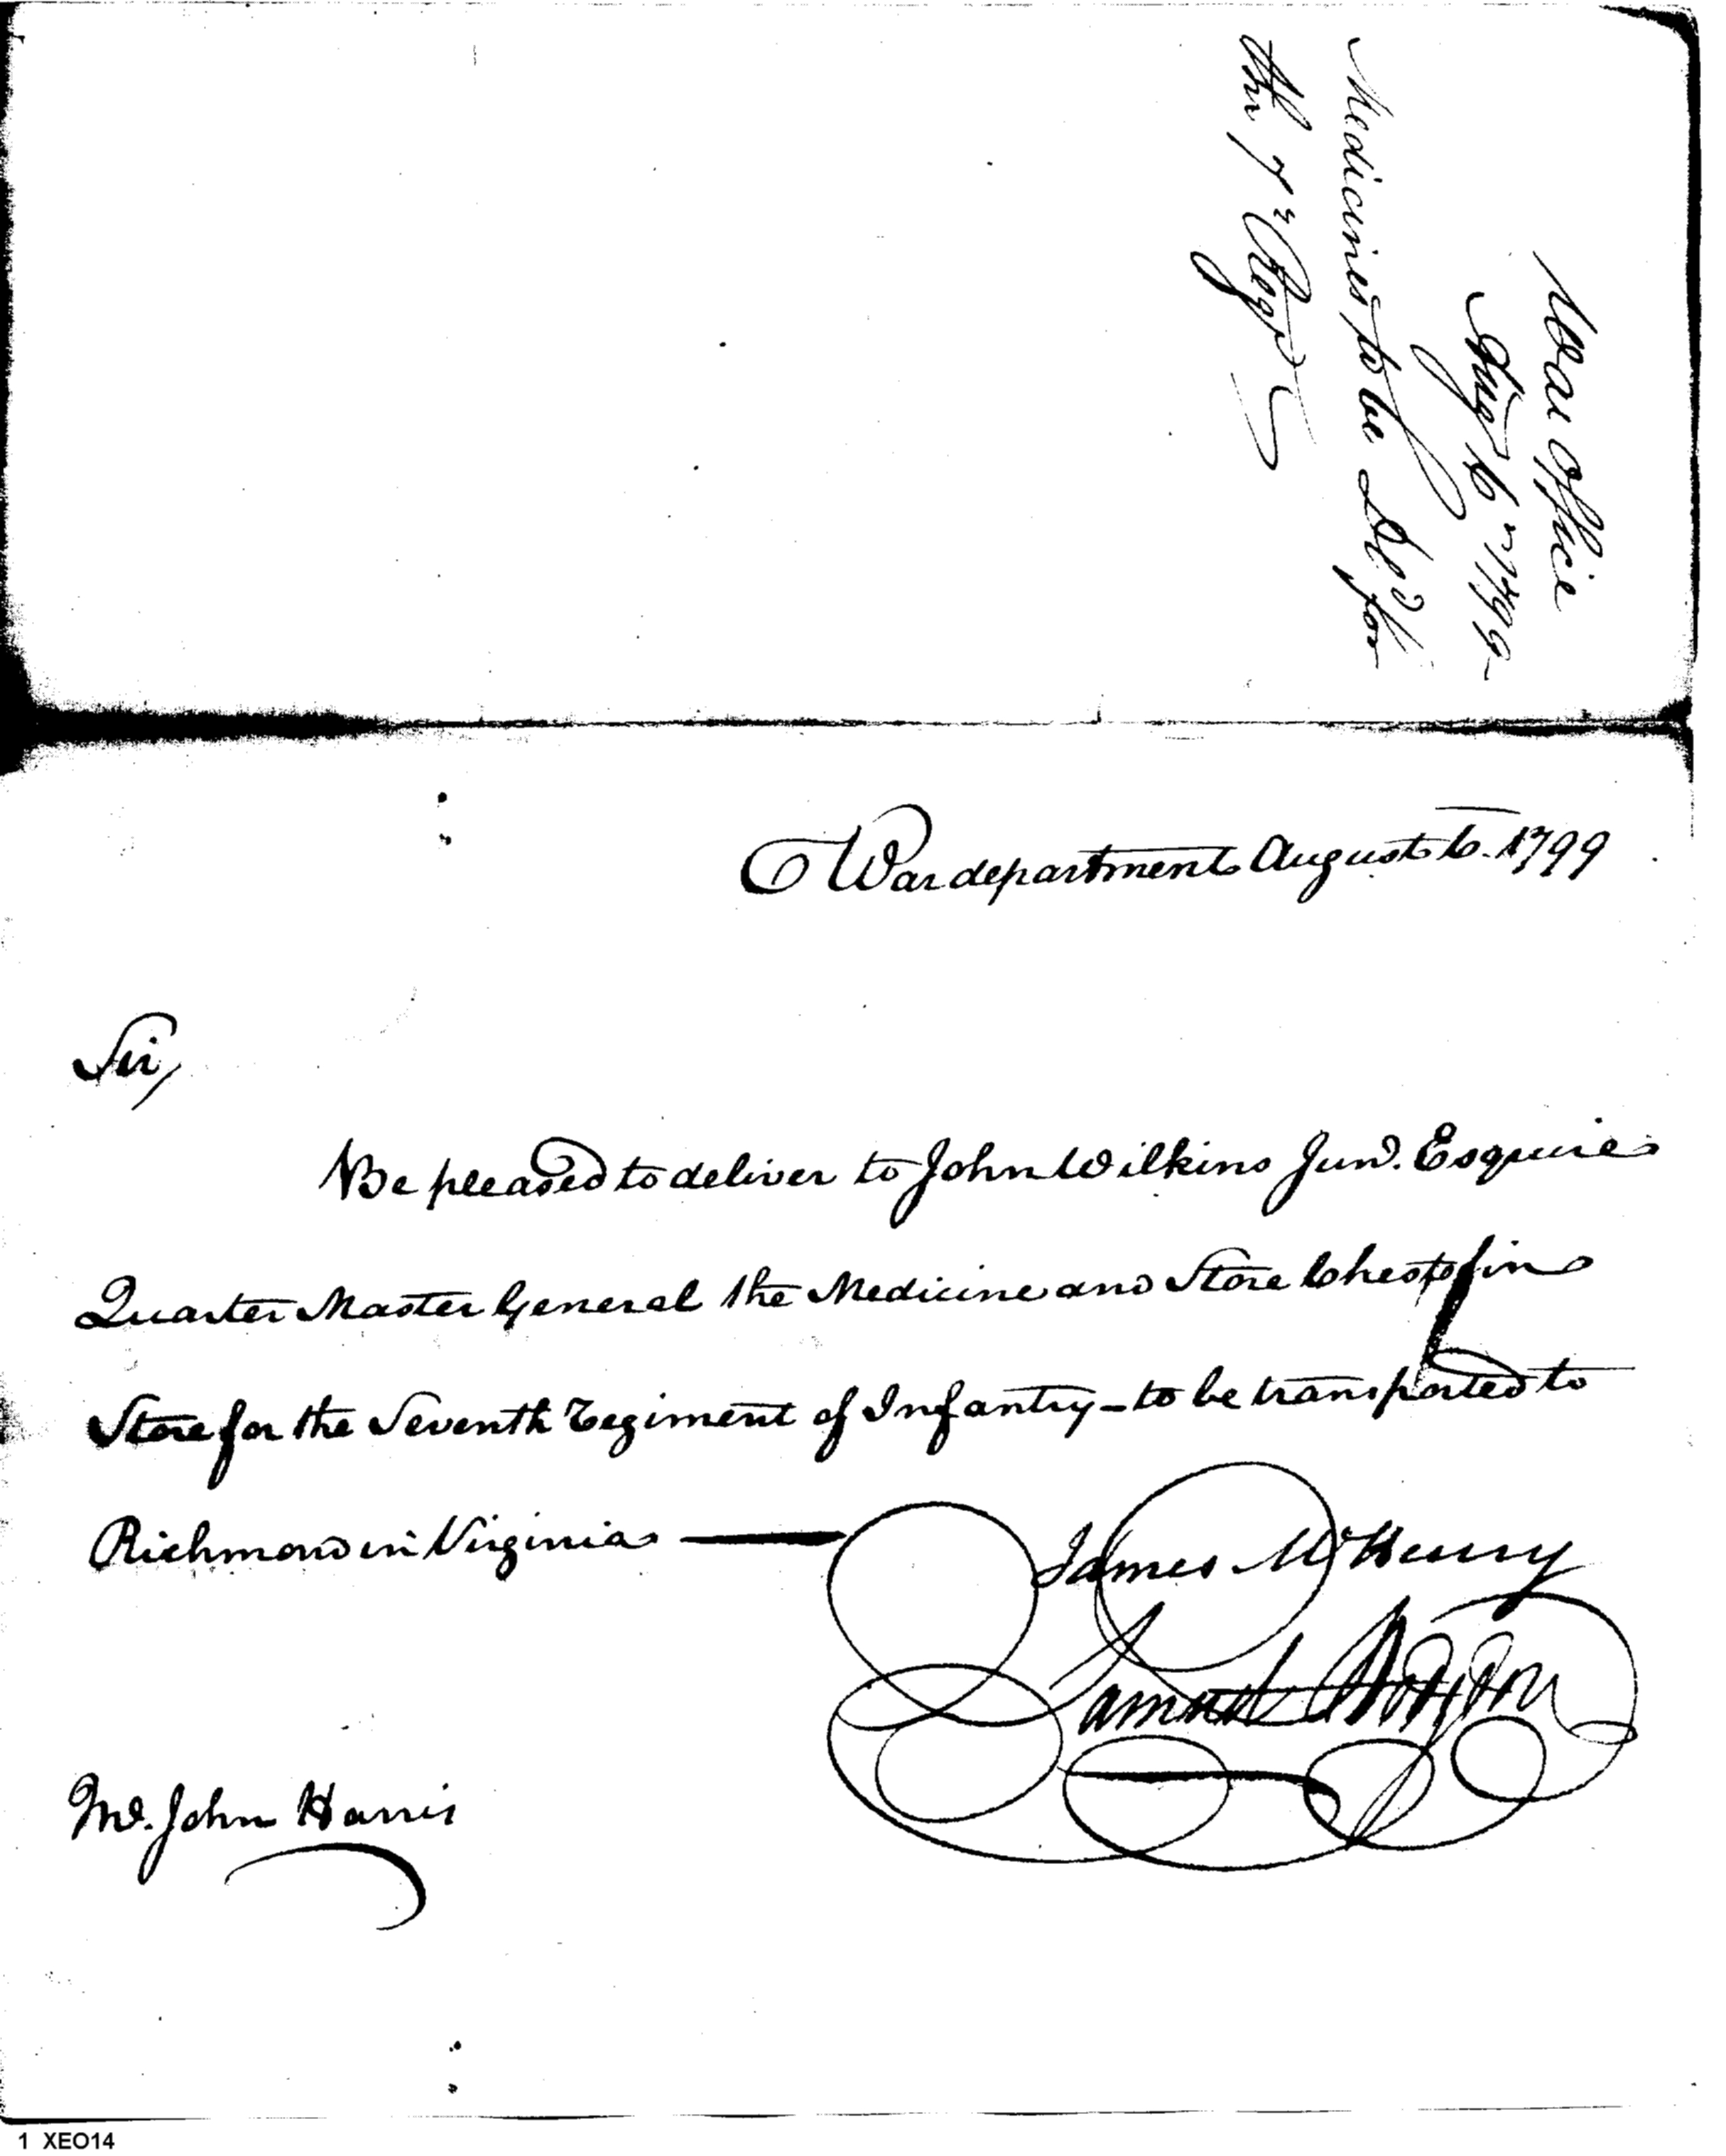 War Office
Aug 6th 1799
Medicines to be Del'd for
the 7th Regt
War department August 6. 1799
Sir,
Be pleased to deliver to John Wilkins Junr. Esquire
Quarter Master General the Medicine and Store Chests in
Store for the Seventh regiment of Infantry - to be transported to
Richmond in Virginia
James McHenry
Samuel Hodgdon
Mr. John Harris
1 XEO14